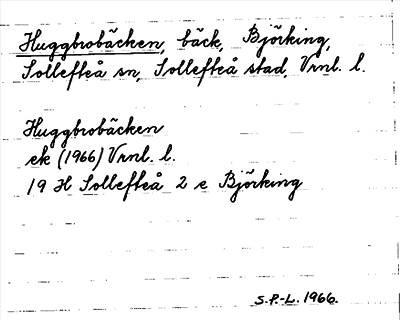 Huggbrobäcken, bäck, Björking,
Sollefteå sn, Sollefteå stad, Vrnl. l.
Huggbrobäcken
ek (1966) Vrnl. l.
19 H Sollefteå 2 e Björking
S.P.-L. 1966.